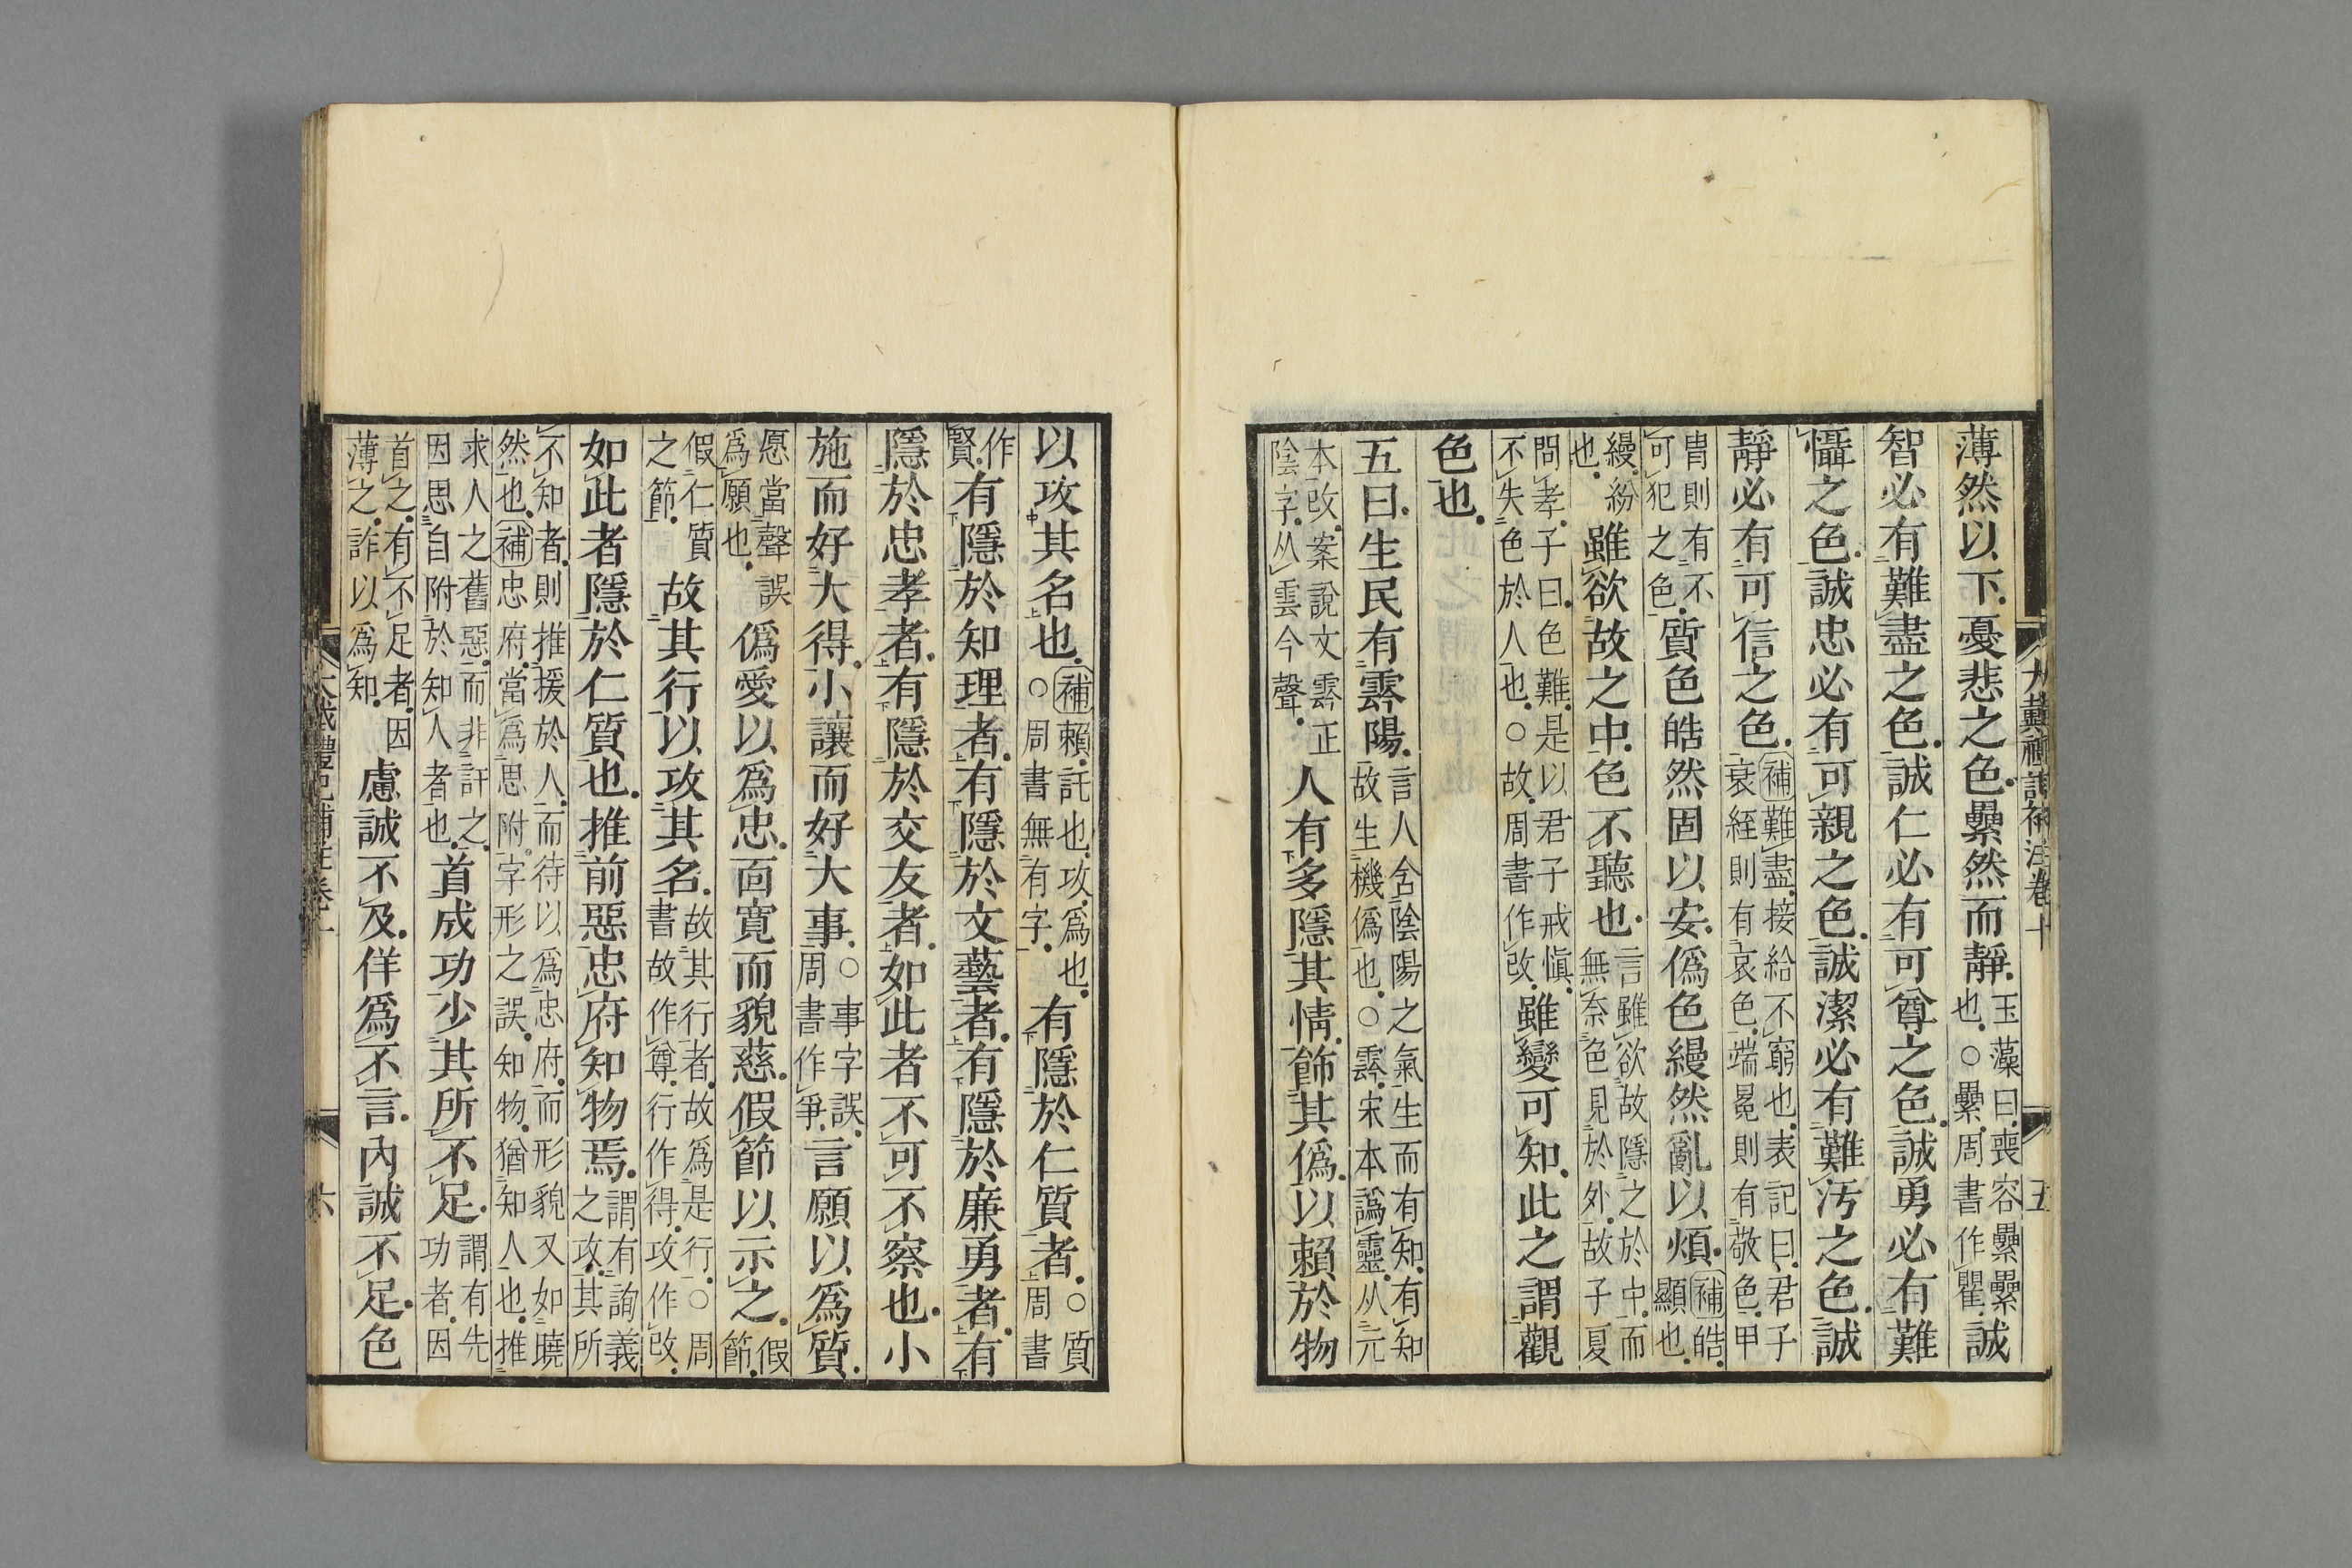 薄然以下憂悲之色纍然而靜玉藻曰喪容纍纍也○纍周書作瞿誠
智必有難盡之色誠仁必有可尊之色誠勇必有難
懾之色誠忠必有可親之色誠潔必有難汚之色誠
靜必有可信之色補難盡接給不窮也表記曰君子衰絰則有哀色端冕則有敬色甲
胄則有不可犯之色質色皓然固以安偽色縵然亂以煩補皓顯也
縵紛也雖欲故之中色不聽也言雖欲故隱之於中而無奈色見於外故子夏
問孝子曰色難是以君子戒愼不失色於人也○故周書作改雖變可知此之謂觀
色也
五曰生民有霒陽言人含陰陽之氣生而有知有知故生機僞也○霒宋本譌靈从元
本改案說文霒正陰字从雲今聲人有多隱其情飾其僞以賴於物
以攻其名也補賴託也攻爲也○周書無有字有隱於仁質者○質周書
作賢有隱於知理者有隱於文藝者有隱於廉勇者有
隱於忠孝者有隱於交友者如此者不可不察也小
施而好大得小讓而好大事○事字誤周書作爭言願以爲質
愿當聲誤爲願也僞愛以爲忠面寛而貌慈假節以示之假節
假仁質之節故其行以攻其名故其行者故爲是行○周書故作尊行作得攻作改
如此者隱於仁質也推前惡忠府知物焉謂有詢義之攻其所
不知者則推援於人而待以爲忠府而形貌又如曉然也補忠府當爲思附字形之誤知物猶知人也推
求人之舊惡而非訐之因思自附於知人者也首成功少其所不足謂有先功者因
首之有不足者因薄之詐以爲知慮誠不及佯爲不言内誠不足色
大戴禮記補注卷十
五
大戴禮記補注卷十
六